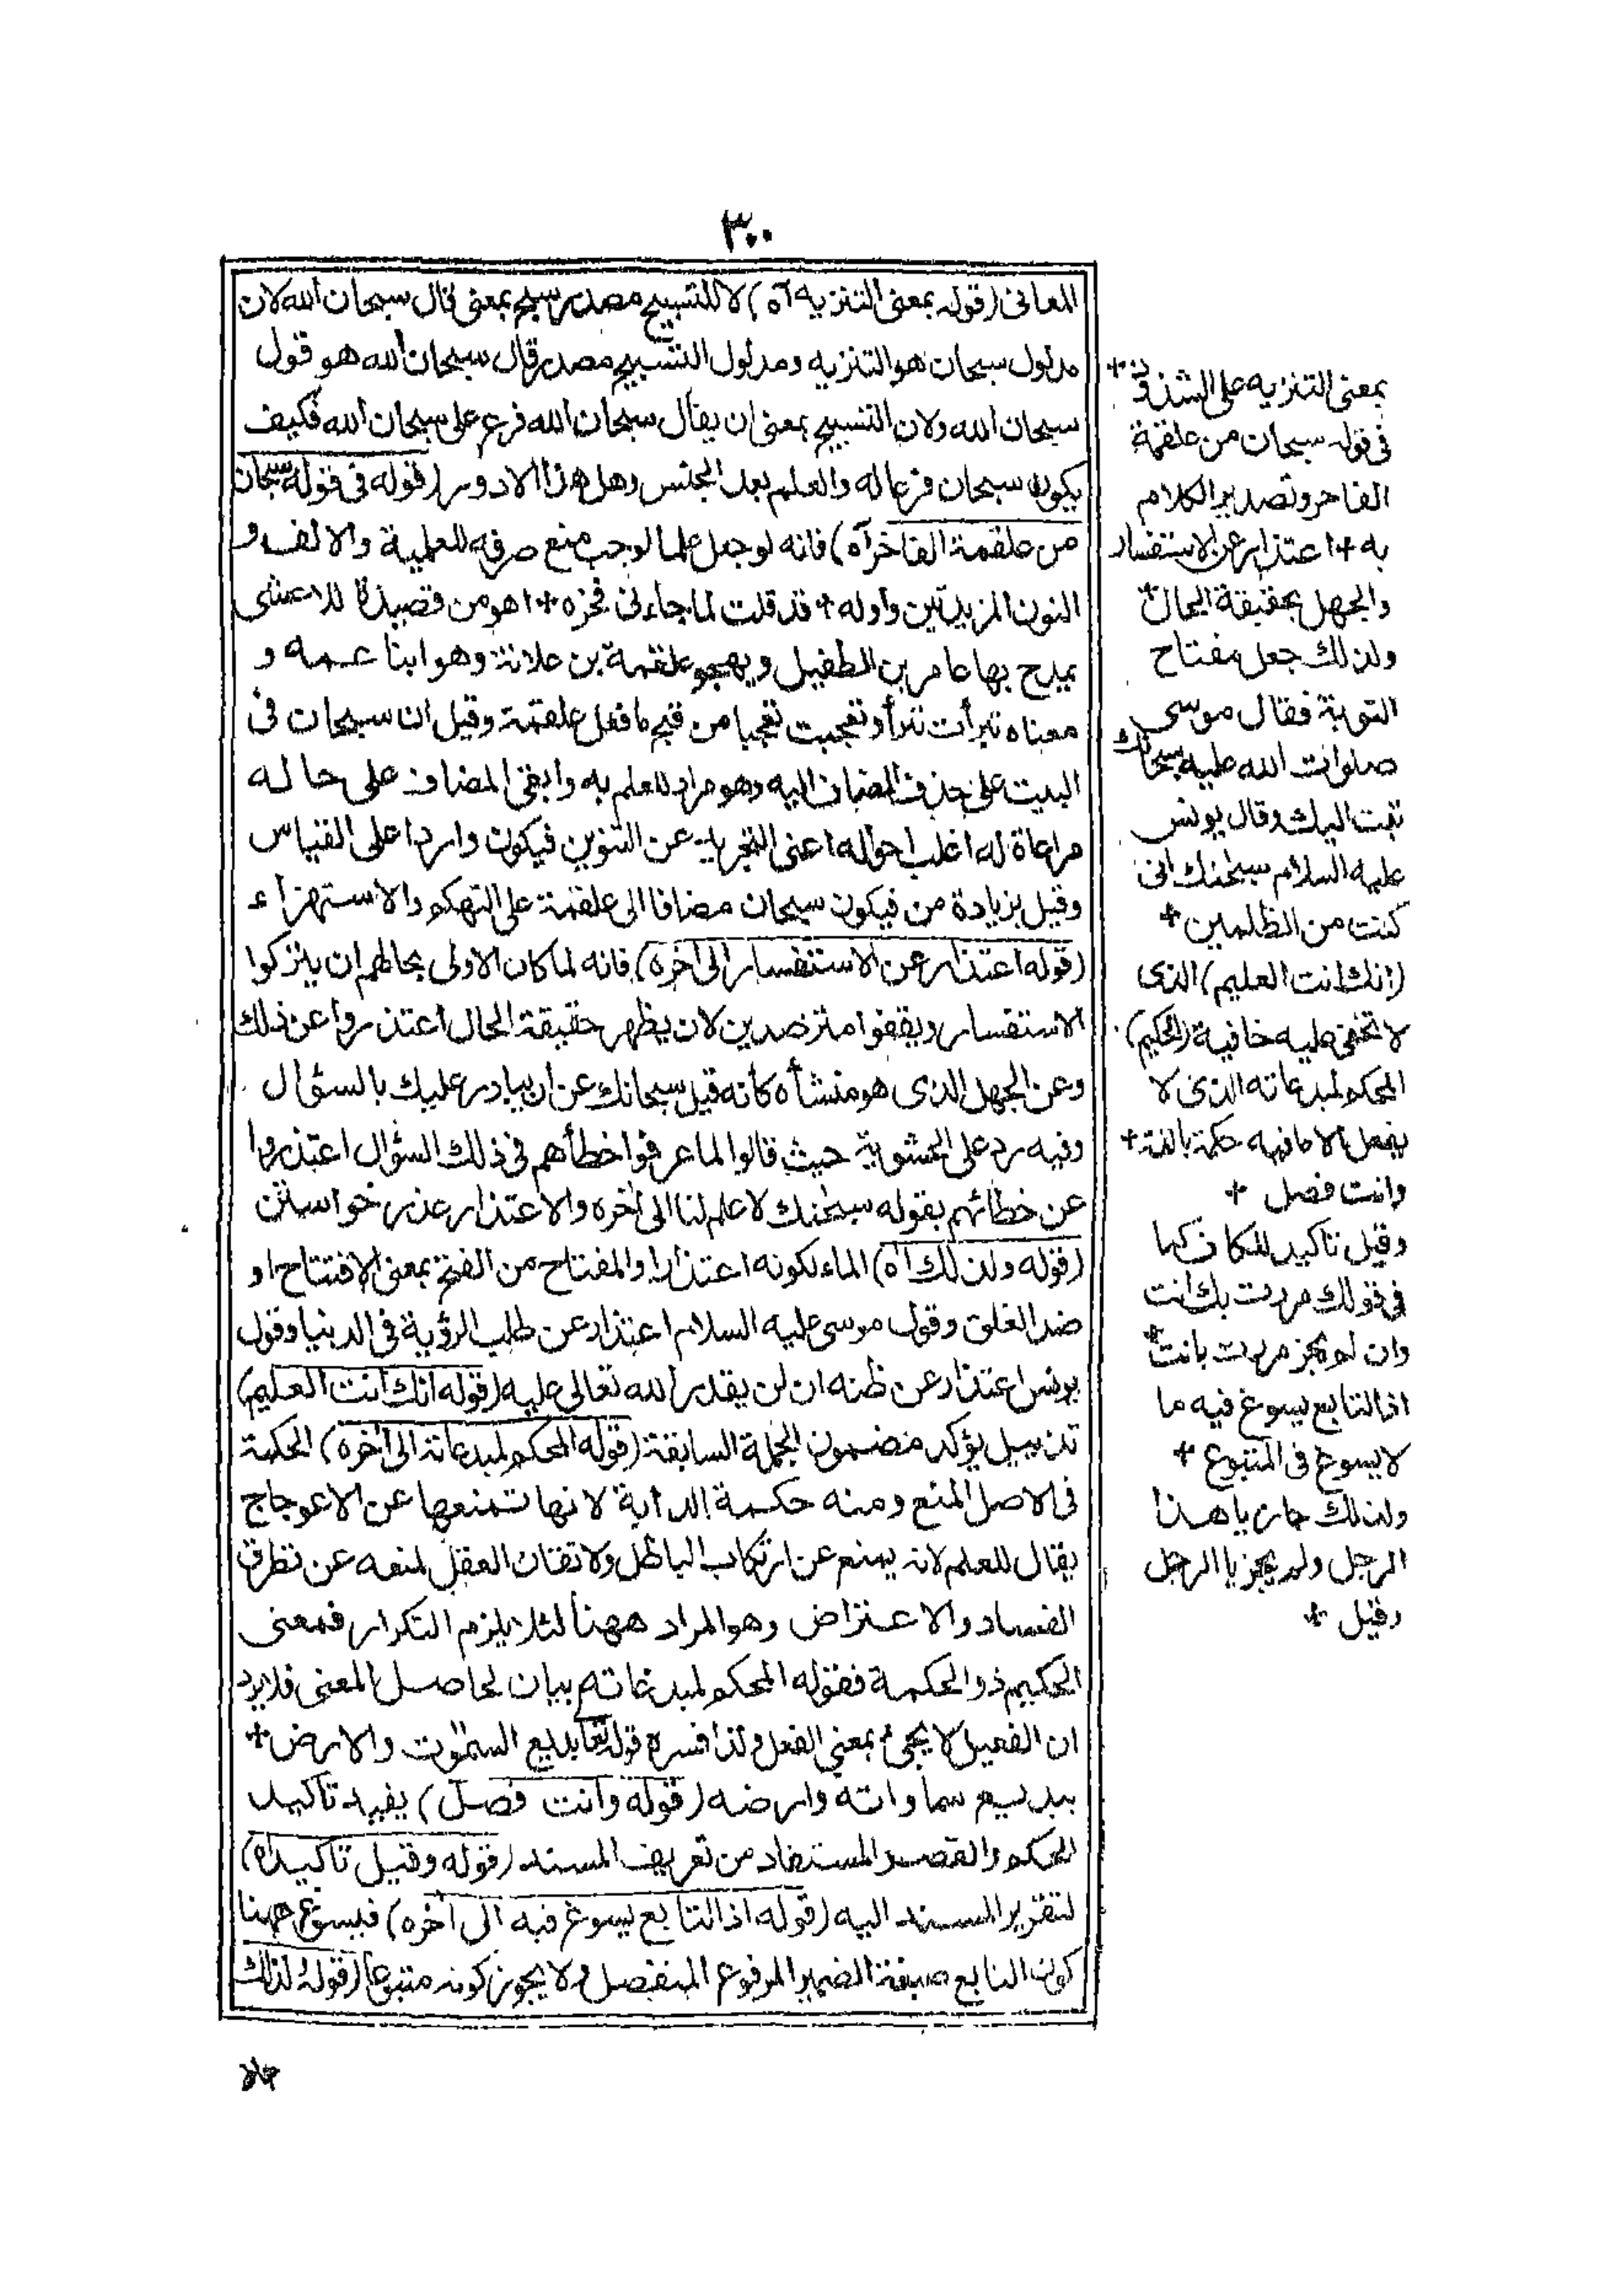 ٣٠٠
المعانى (قوله بمعنى التنزيه آه) لا للتسبيح مصدر سبح بمعنى قال سبحان الله لان
مدلول سبحان هو التنزيه ومدلول التسبيح مصدر قال سبحان الله هو قول
سبحان الله ولان التسبيح بمعنى ان يقال سبحان الله فرع على سبحان الله فكيف
يكون سبحان فرعا له والعلم بعد الجنس وهل هذا الا دور (قوله فى قوله سبحان
من علقمة الفاخر آه) فانه لو جعل علما لوجب منع صرفه للعلمية والالف و
النون المزيدتين واوله + قد قلت لما جاءنى فخره + اهو من قصيدة للاعشى
يمدح بها عامر بن الطفيل ويهجو علقمة بن علاثة وهو ابنا عمه و
معناه تبرأت تبرأ وتعجبت تعجبا من قبح ما فعل علقمة وقيل ان سبحان فى
البيت على حذف المضاف اليه وهو مراد للعلم به وابقى المضاف على حاله
مراعاة له اغلب احواله اعنى التجريد عن التنوين فيكون واردا على القياس
وقيل بزيادة من فيكون سبحان مضافا الى علقمة على التهكم والاستهزاء
(قوله اعتذار عن الاستفسار الى آخره) فانه لما كان الاولى بحالهم ان يتركوا
الاستفسار ويقفوا مترصدين لان يظهر حقيقة الحال اعتذروا عن ذلك
وعن الجهل الذى هو منشأه كأنه قيل سبحانك عن ان يبادر عليك بالسؤال
وفيه رد على الحشوية حيث قالوا لما عرفوا خطأهم فى ذلك السؤال اعتذروا
عن خطائهم بقوله سبحنك لا علم لنا الى آخره والاعتذار عذر خواستن
(قوله ولذلك آه) الماء لكونه اعتذارا والمفتاح من الفتح بمعنى الافتتاح او
ضد الغلق وقول موسى عليه السلام اعتذار عن طلب الرؤية فى الدنيا وقول
يونس اعتذار عن ظنه ان لن يقدر الله تعالى عليه (قوله انك انت العليم)
تذييل يؤكد مضمون الجملة السابقة (قوله المحكم لمبدعاته الى آخره) الحكمة
فى الاصل المنع ومنه حكمة الدابة لانها تمنعها عن الاعوجاج
يقال للعلم لانه يمنع عن ارتكاب الباطل ولاتقان العقل لمنعه عن تطرق
الفساد والاعتراض وهو المراد ههنا لئلا يلزم التكرار فمعنى
الحكيم ذو الحكمة فقوله المحكم لمبدعاته بيان لحاصل المعنى فلا يرد
ان الفعيل لا يجئ بمعنى الفعل ولذا فسره قوله تعا بديع السموت والارض +
ببديع سماواته وارضه (قوله وانت فصل) يفيد تاكيد
الحكم والقصر المستفاد من تعريف المسند (قوله وقيل تاكيد آه)
لتقرير المسند اليه (قوله اذ التابع يسوغ فيه الى آخره) فيسوغ ههنا
كون التابع صيغة الضمير المرفوع المنفصل ولا يجوز كونه متبوعا (قوله لذلك
بمعنى التنزيه على الشذوذ +
فى قوله سبحان من علقمة
الفاخر وتصدير الكلام
به + اعتذار عن الاستفسار
والجهل بحقيقة الحال +
ولذلك جعل مفتاح
التوبة فقال موسى
صلوات الله عليه سبحانك
تبت اليك وقال يونس
عليه السلام سبحنك انى
كنت من الظلمين +
(انك انت العليم) الذى
لا تخفى عليه خافية (الحكيم)
المحكم لمبدعاته الذى لا
يفعل الا ما فيه حكمة بالغة +
وانت فصل +
وقيل تاكيد للكاف كما
فى قولك مررت بك انت
وان لم يجز مررت بانت +
اذ التابع يسوغ فيه ما
لا يسوغ فى المتبوع +
ولذلك جاز يا هذا
الرجل ولم يجز يا الرجل
وقيل +